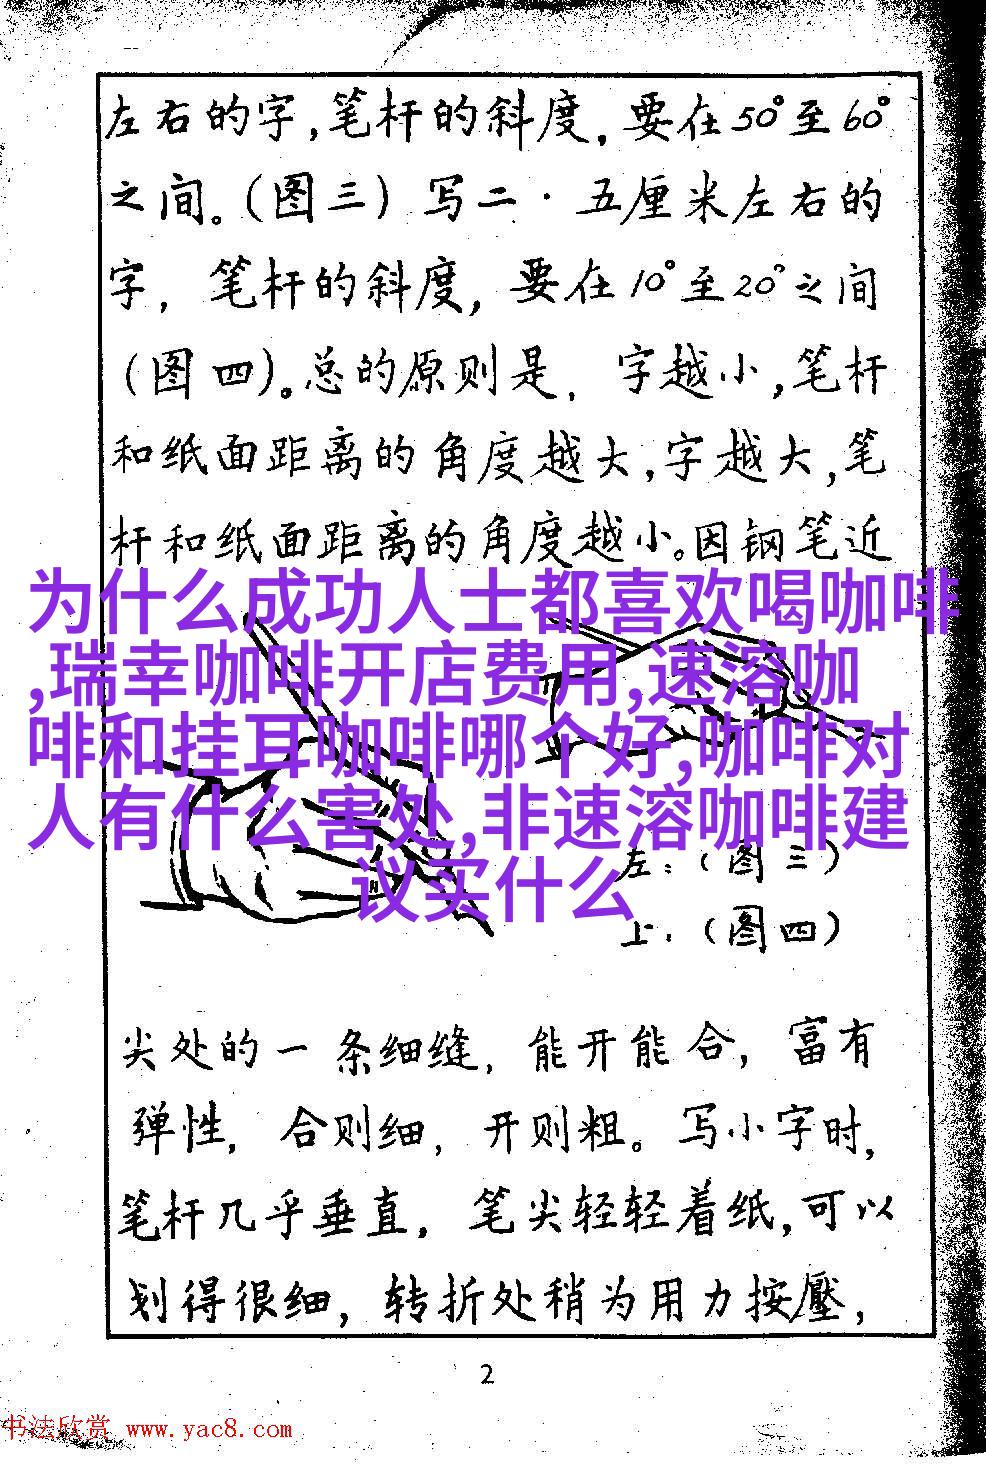 左右的字,笔杆的斜度,要在50°至60°
之间。(图三)写二·五厘米左右的
字,笔杆的斜度,要在10°至20°之间
(图四)。总的原则是,字越小,笔杆
和纸面距离的角度越大,字越大,笔
杆和纸面距离的角度越小。因钢笔近
为什么成功人士都喜欢喝咖啡
,瑞幸咖啡开店费用,速溶咖
啡和挂耳咖啡哪个好,咖啡对
人有什么害处,非速溶咖啡建
议买什么
左:(图三)
上:(图四)
尖处的一条细缝,能开能合,富有
弹性,合则细,开则粗。写小字时,
笔杆几乎垂直,笔尖轻轻着纸,可以
划得很细,转折处稍为用力按壓,
2
书法欣赏 www.yac8.com